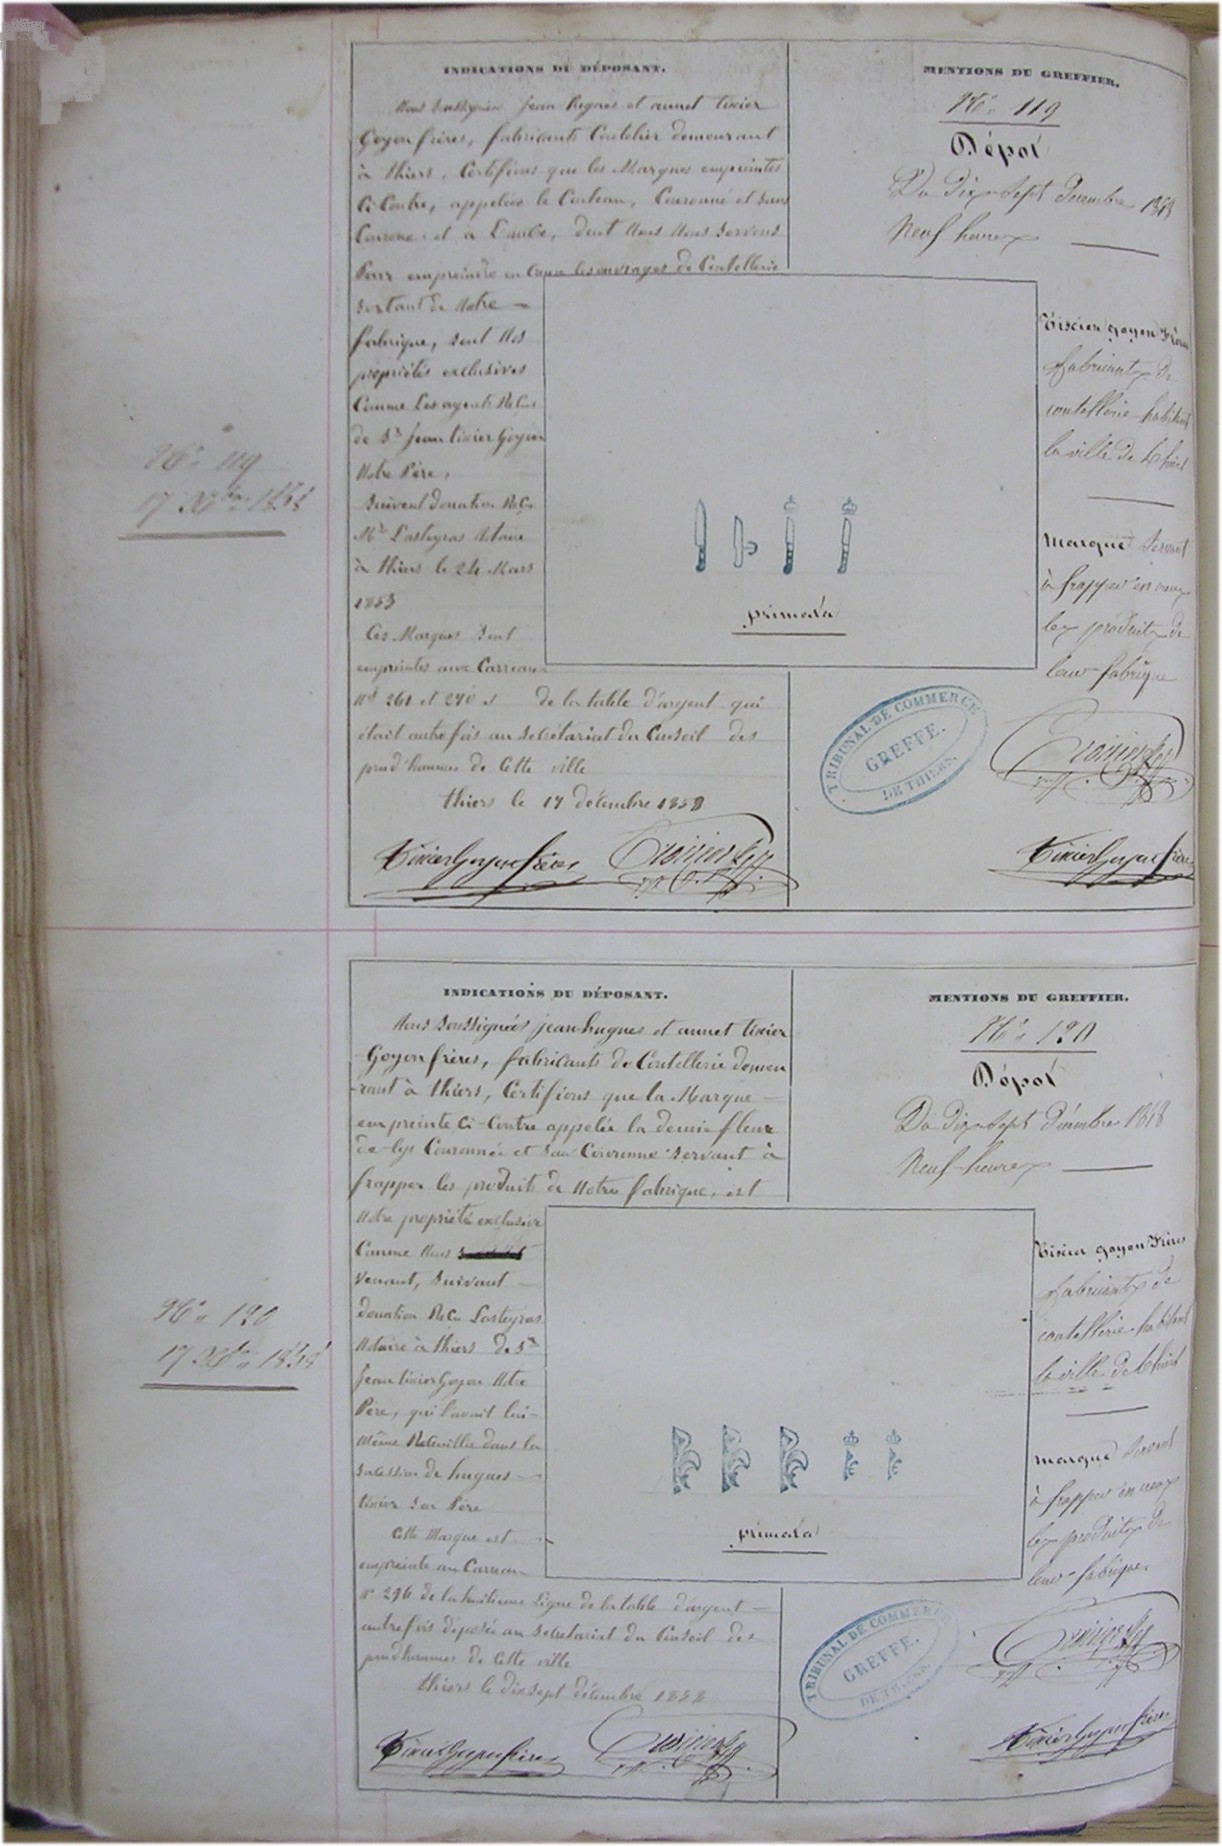 INDICATIONS DU DÉPOSANT.
Nous soussignés Jean Hugues et annet tixier
Goyon frères, fabricants Coutelier demeurant
à thiers, Certifions que les Marques empreintes
Ci Contre, appelées le Couteau, Couronné et sans
Couronne et à l'aube, dont Nous Nous Servons
Pour empreindre en Creux les ouvrages de Coutellerie
Sortant de Notre
fabrique, sont Nos
propriétés exclusives
Comme Les ayants Reçus
de Sr Jean tixier Goyon
Notre Père,
Suivant donation Reçu
Me Lasteyras Notaire
à thiers le 24 Mars
1853
Ces Marques Sont
empreintes aux Carreaux
Nos 261 et 270 de la table d'argent qui
était autrefois au Secrétariat du Conseil des
prud'hommes de Cette ville
thiers le 17 décembre 1858
Tixier Goyon frères
MENTIONS DU GREFFIER.
No 119
Dépôt
Du dix-sept décembre 1858
Neuf heures
Tixier goyon frères
fabricants de
coutellerie habitant
la ville de thiers
marque servant
à frapper en creux
les produits de
leur fabrique
primata
TRIBUNAL DE COMMERCE
GREFFE.
DE THIERS.
Tixier Goyon frères
No 119
17 Xbre 1858
INDICATIONS DU DÉPOSANT.
Nous Soussignés jean hugues et annet tixier
Goyon frères, fabricants de Coutellerie demeu
rant à thiers, Certifions que la Marque
empreinte Ci-Contre appelée la demie fleur
de-lys Couronnée et Sans Couronne Servant à
frapper les produits de Notre fabrique, est
Notre propriété exclusive
Comme Nous
Venant, Suivant
donation Reçu Lasteyras
Notaire à thiers de Sr
Jean tixier Goyon Notre
Père, qui l'avait lui-
Même Recueillie dans la
Succession de hugues
tixier Son Père
Cette Marque est
empreinte au Carreau
No 296 de la huitième Ligne de la table d'argent
autrefois déposée au Secrétariat du Conseil des
prudhommes de Cette ville
thiers le dix sept décembre 1858
Tixier Goyon frères
MENTIONS DU GREFFIER.
No 120
Dépôt
Du dix-sept décembre 1858
Neuf heures
Tixier goyon frères
fabricants de
coutellerie habitant
la ville de thiers
marque servant
à frapper en creux
les produits de
leur fabrique
primata
TRIBUNAL DE COMMERCE
GREFFE.
DE THIERS.
Tixier Goyon frères
No 120
17 Xbre 1858